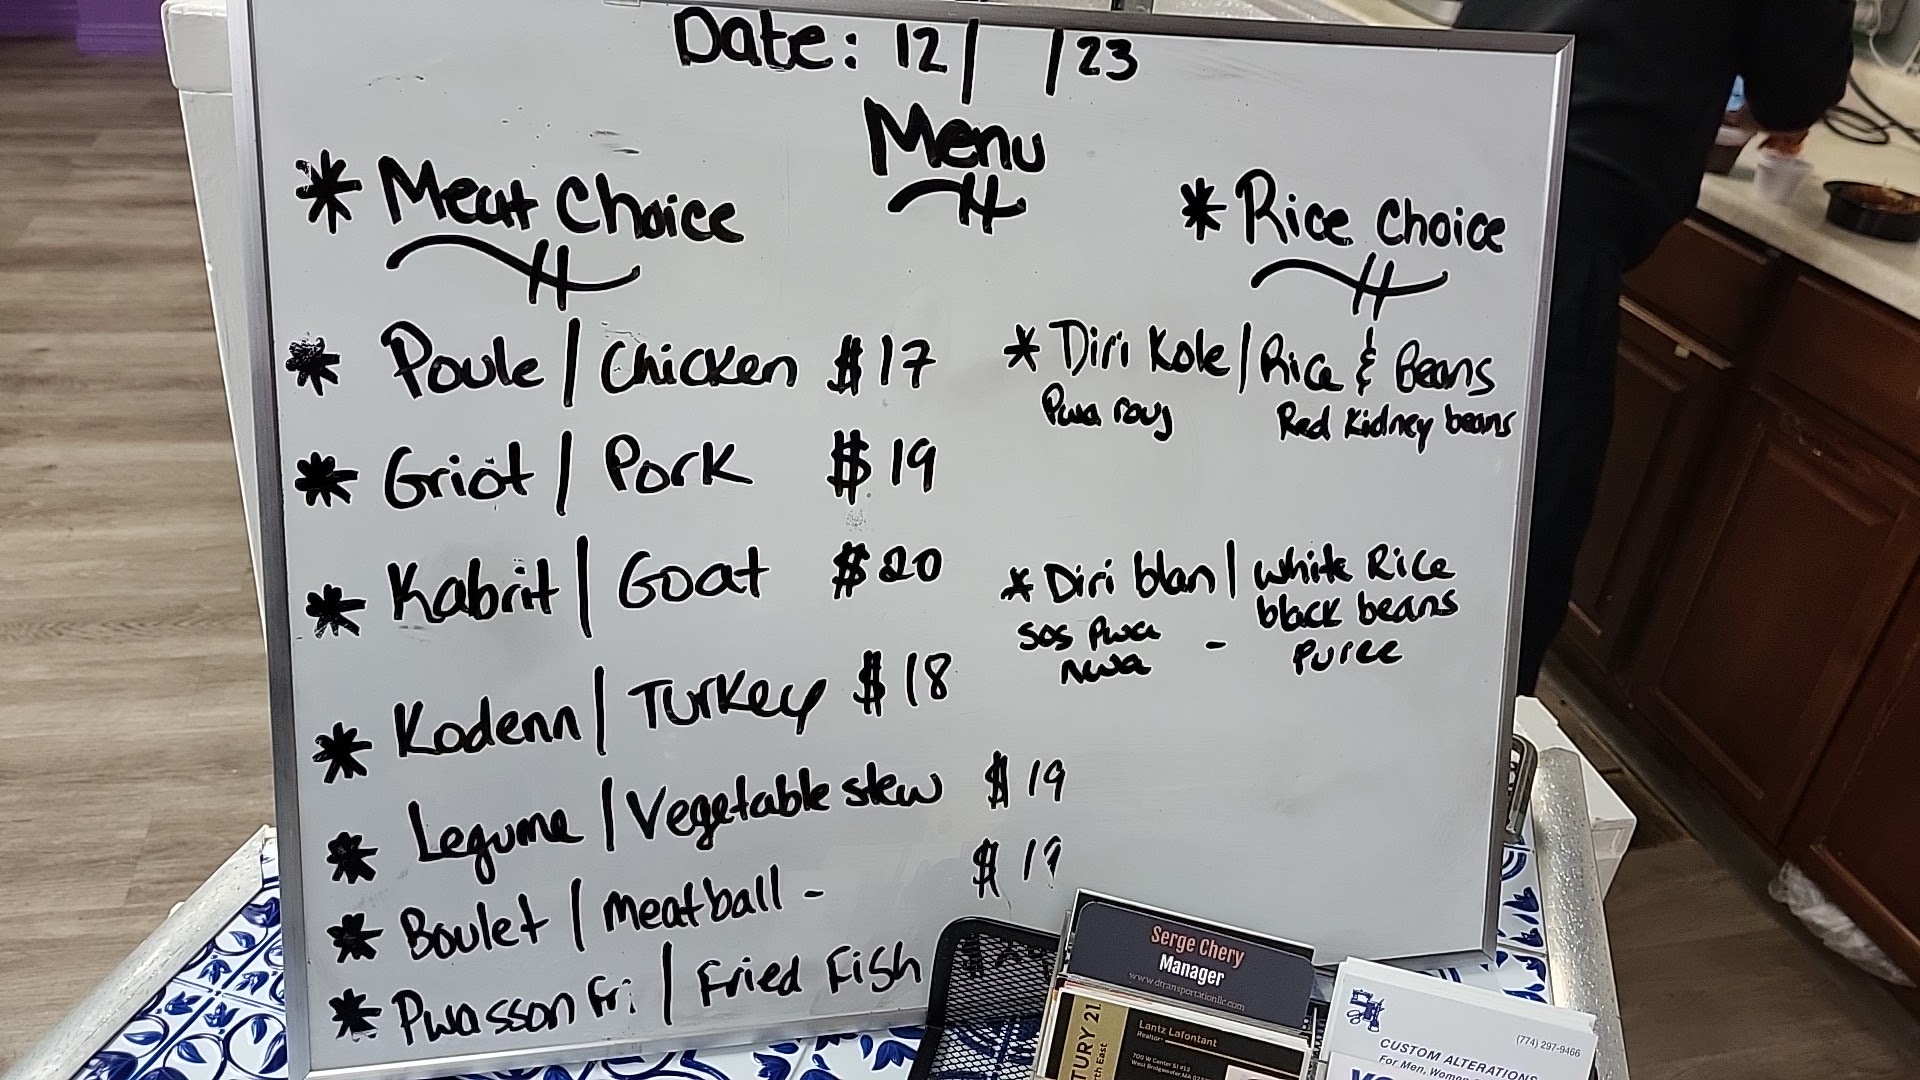 Date: 12/ /23
Menu
* Meat Choice
* Poule / Chicken $17
* Griot / Pork $19
* Kabrit / Goat $20
* Kodenn / Turkey $18
* Legume / Vegetable stew $19
* Boulet / Meatball - $19
* Pwasson fri / Fried Fish
* Rice Choice
* Diri Kole / Rice & Beans
Pwa rouj Red Kidney beans
* Diri blan / White Rice
black beans
sos pwa - puree
nwa
Serge Chery
Manager
www.dtransportationllc.com
Lantz Lafontant
Realtor
700 W Center St #13
West Bridgewater MA
TURY 21
(774) 297-9466
CUSTOM ALTERATIONS
For Men,